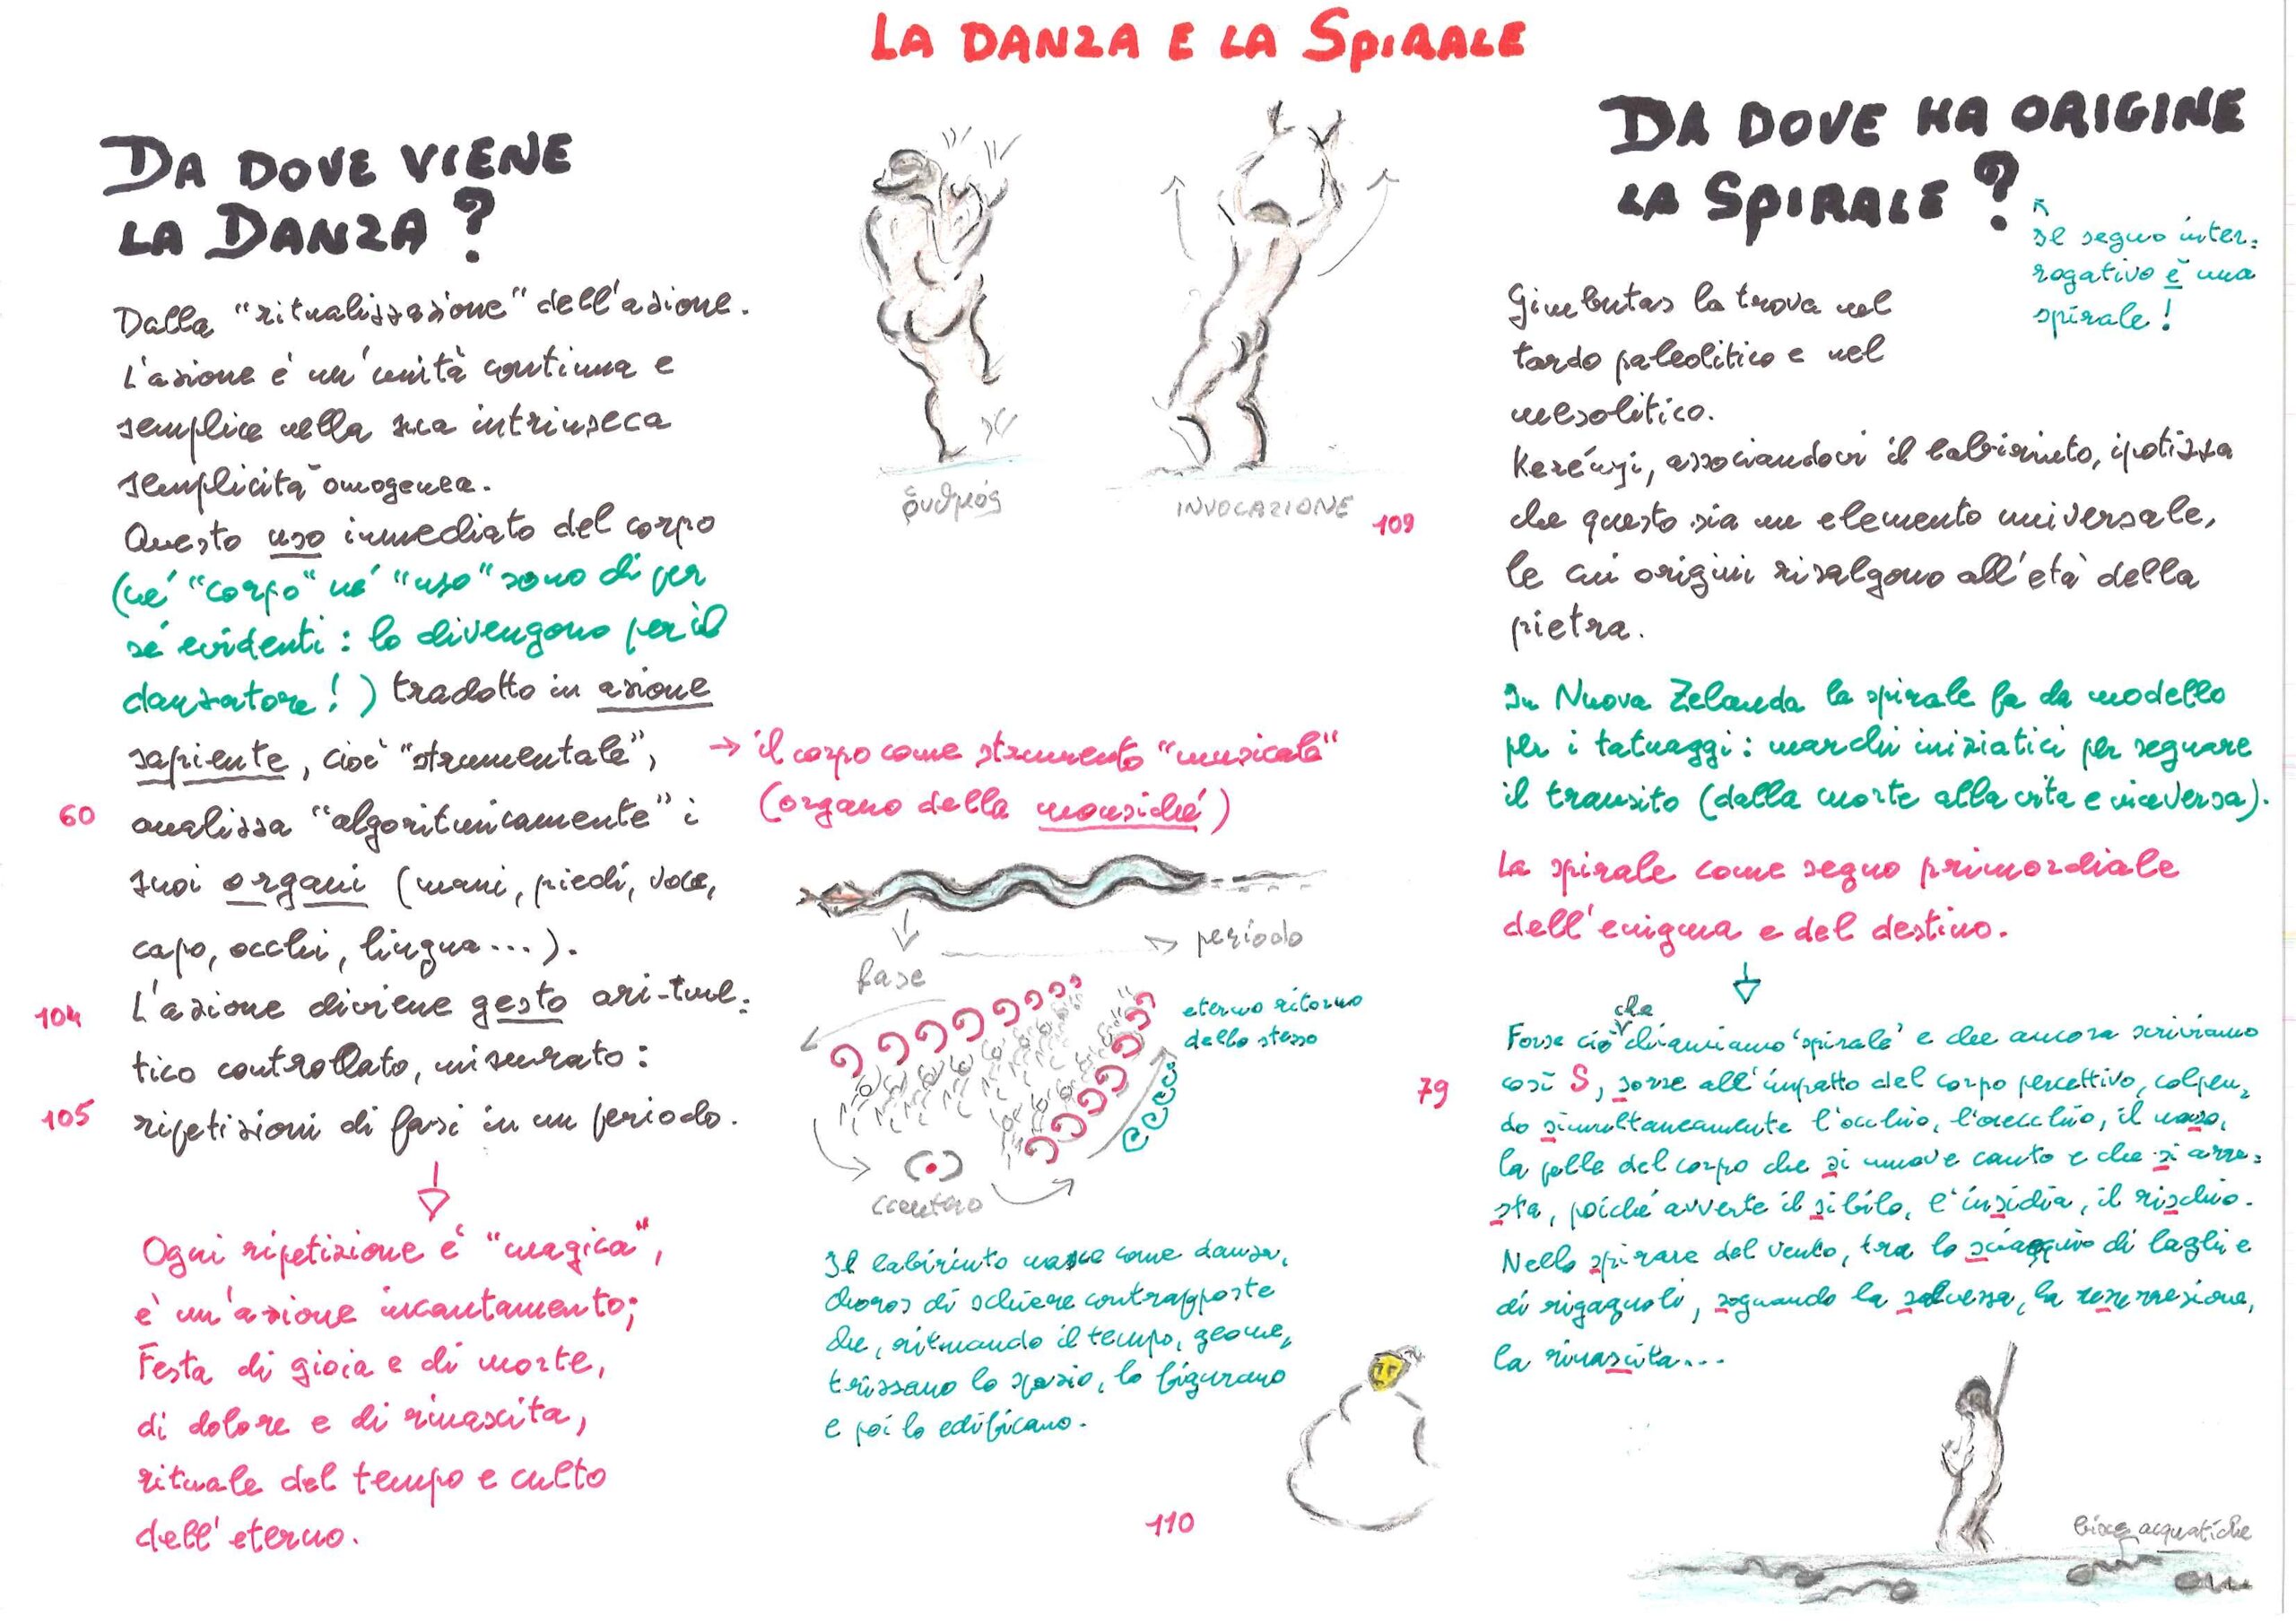 LA DANZA E LA SPIRALE
DA DOVE VIENE
LA DANZA?
Dalla "ritualizzazione" dell'azione.
L'azione è un'unità continua e
semplice nella sua intrinseca
semplicità omogenea.
Questo uso immediato del corpo
(né "corpo" né "uso" sono di per
sé evidenti: lo divengono per il
danzatore!) tradotto in azione
sapiente, cioè "strumentale",
60
analizza "algoritmicamente" i
suoi organi (mani, piedi, voce,
capo, occhi, lingua...).
104
L'azione diviene gesto ari-tme=
tico controllato, misurato:
105
ripetizioni di fasi in un periodo.
Ogni ripetizione è "magica",
è un'azione incantamento;
Festa di gioia e di morte,
di dolore e di rinascita,
rituale del tempo e culto
dell'eterno.
ῥυθμός
INVOCAZIONE
109
→ il corpo come strumento "musicale"
(organo della mousiché)
periodo
fase
eterno ritorno
dello stesso
centro
Il labirinto nasce come danza,
choros di schiere contrapposte
che, ritmando il tempo, geome=
trizzano lo spazio, lo figurano
e poi lo edificano.
110
DA DOVE HA ORIGINE
LA SPIRALE?
Il segno inter=
rogativo è una
spirale!
Gimbutas la trova nel
tardo paleolitico e nel
mesolitico.
Kerényi, associandovi il labirinto, ipotizza
che questo sia un elemento universale,
le cui origini risalgono all'età della
pietra.
In Nuova Zelanda la spirale fa da modello
per i tatuaggi: marchi iniziatici per segnare
il transito (dalla morte alla vita e viceversa).
La spirale come segno primordiale
dell'enigma e del destino.
Forse ciò che chiamiamo 'spirale' e che ancora scriviamo
79
così S, sorse all'impatto del corpo percettivo, colpen=
do simultaneamente l'occhio, l'orecchio, il naso,
la pelle del corpo che si muove cauto e che si arre=
sta, poiché avverte il sibilo, l'insidia, il rischio.
Nello spirare del vento, tra lo di laghi e
di rigagnoli, sognando la salvezza, la resurrezione,
la rinascita...
bisce acquatiche